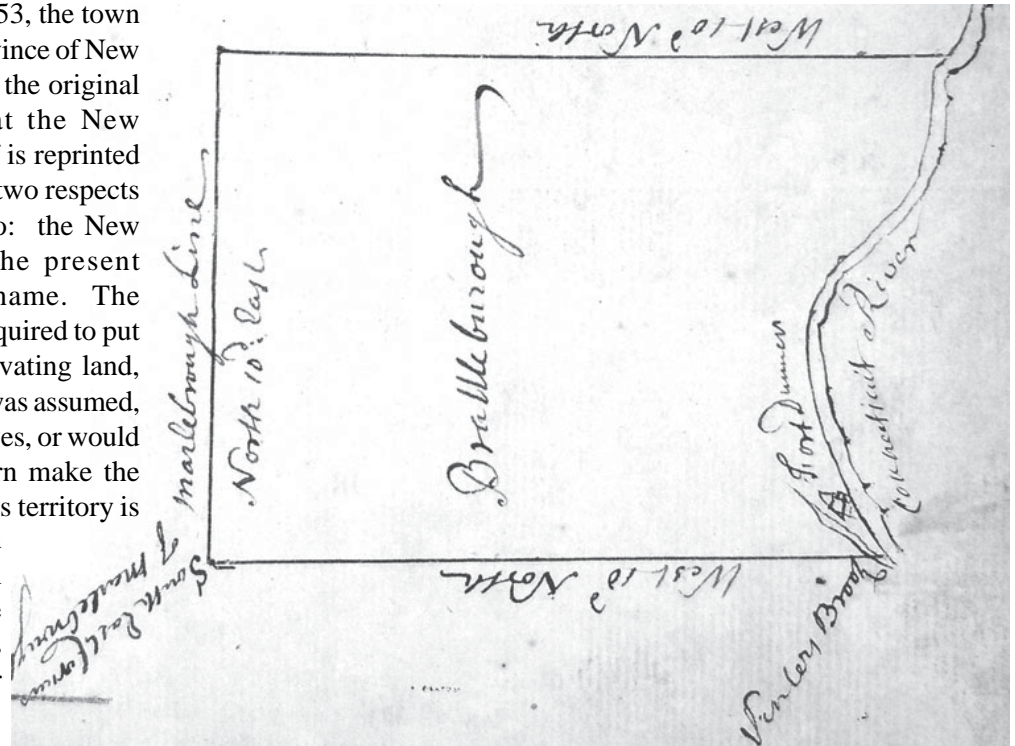 53, the town
vince of New
the original
at the New
is reprinted
two respects
o: the New
he present
name. The
quired to put
vating land,
was assumed,
es, or would
rn make the
s territory is
West 10d North
Marlebrough Line
North 10d East
Brattleburough
Fort Dummer
Connecticut River
West 10d North
South East Corner
of Marlebrough
Venters Brook